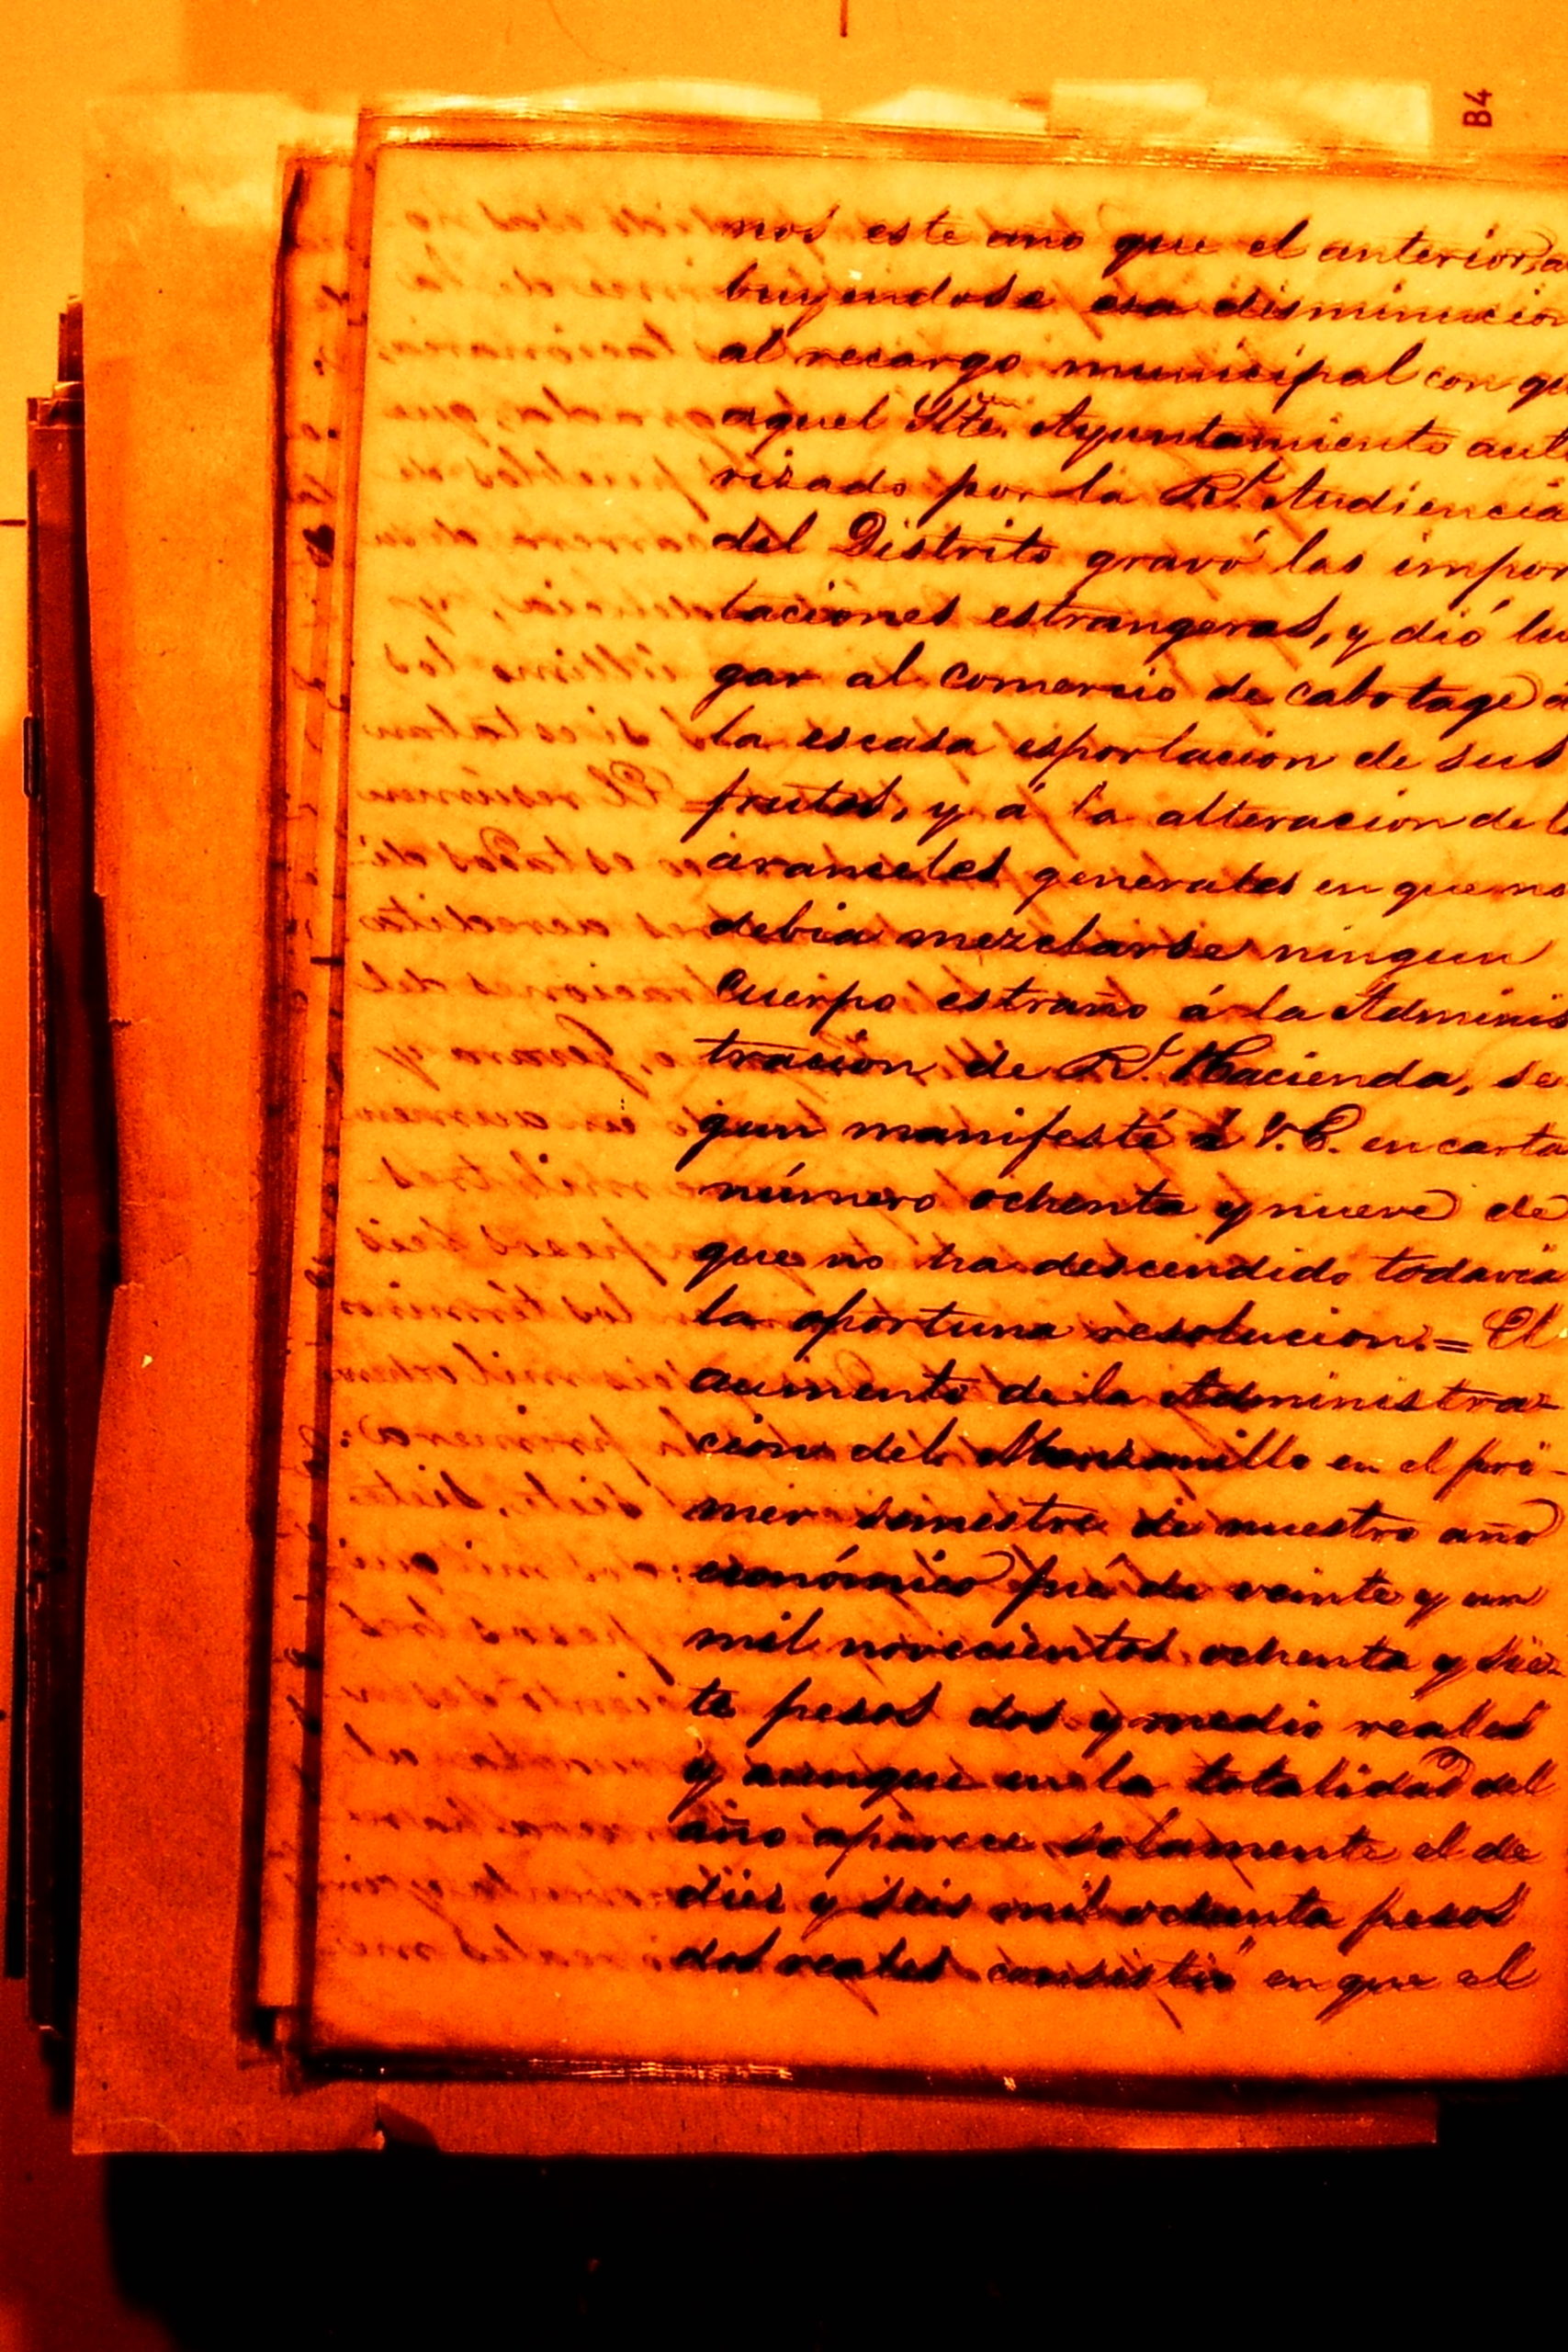 B4
nos este año que el anterior, a
buyendose esa disminucion
al recargo municipal con qu
aquel Ylte. Ayuntamiento auto
rizado por la Rl. Audiencia
del Distrito gravó las impor
taciones estrangeras, y dió lu
gar al comercio de cabotage á
la escasa esportacion de sus
frutos, y á la alteracion de l
aranceles generales en que no
debia mezclarse ningun
cuerpo estraño á la Adminis
tracion de Rl. Hacienda, se
gun manifesté á V.E. en carta
número ochenta y nueve de
que no ha descendido todavia
la oportuna resolucion. = El
aumento de la Administra-
cion del Manzanillo en el pri-
mer semestre de nuestro año
económico fué de veinte y un
mil novecientos ochenta y sie-
te pesos dos y medio reales
y aunque en la totalidad del
año aparece solamente el de
diez y seis mil ochenta pesos
dos reales consistió en que el